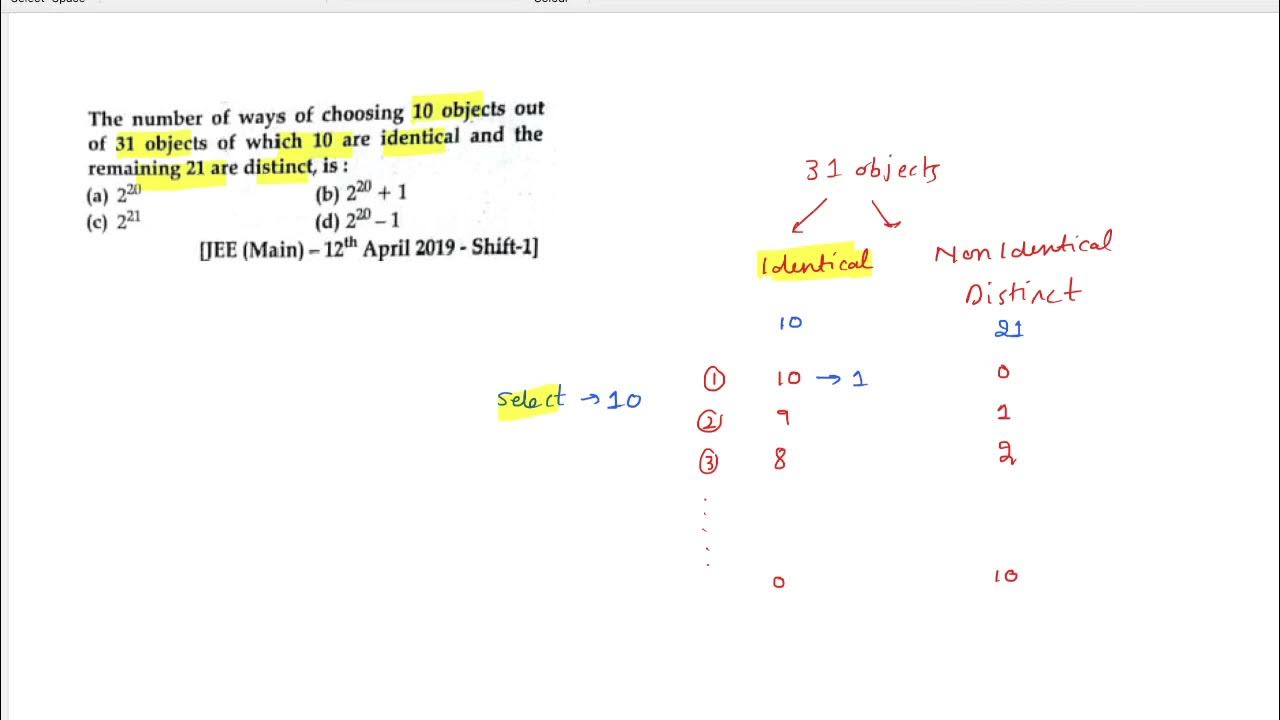 The number of ways of choosing 10 objects out
of 31 objects of which 10 are identical and the
remaining 21 are distinct, is :
(a) 2²⁰ (b) 2²⁰ + 1
(c) 2²¹ (d) 2²⁰ – 1
[JEE (Main) – 12th April 2019 - Shift-1]
31 objects
Identical Non Identical
Distinct
10 21
Select → 10
① 10 → 1 0
② 9 1
③ 8 2
0 10